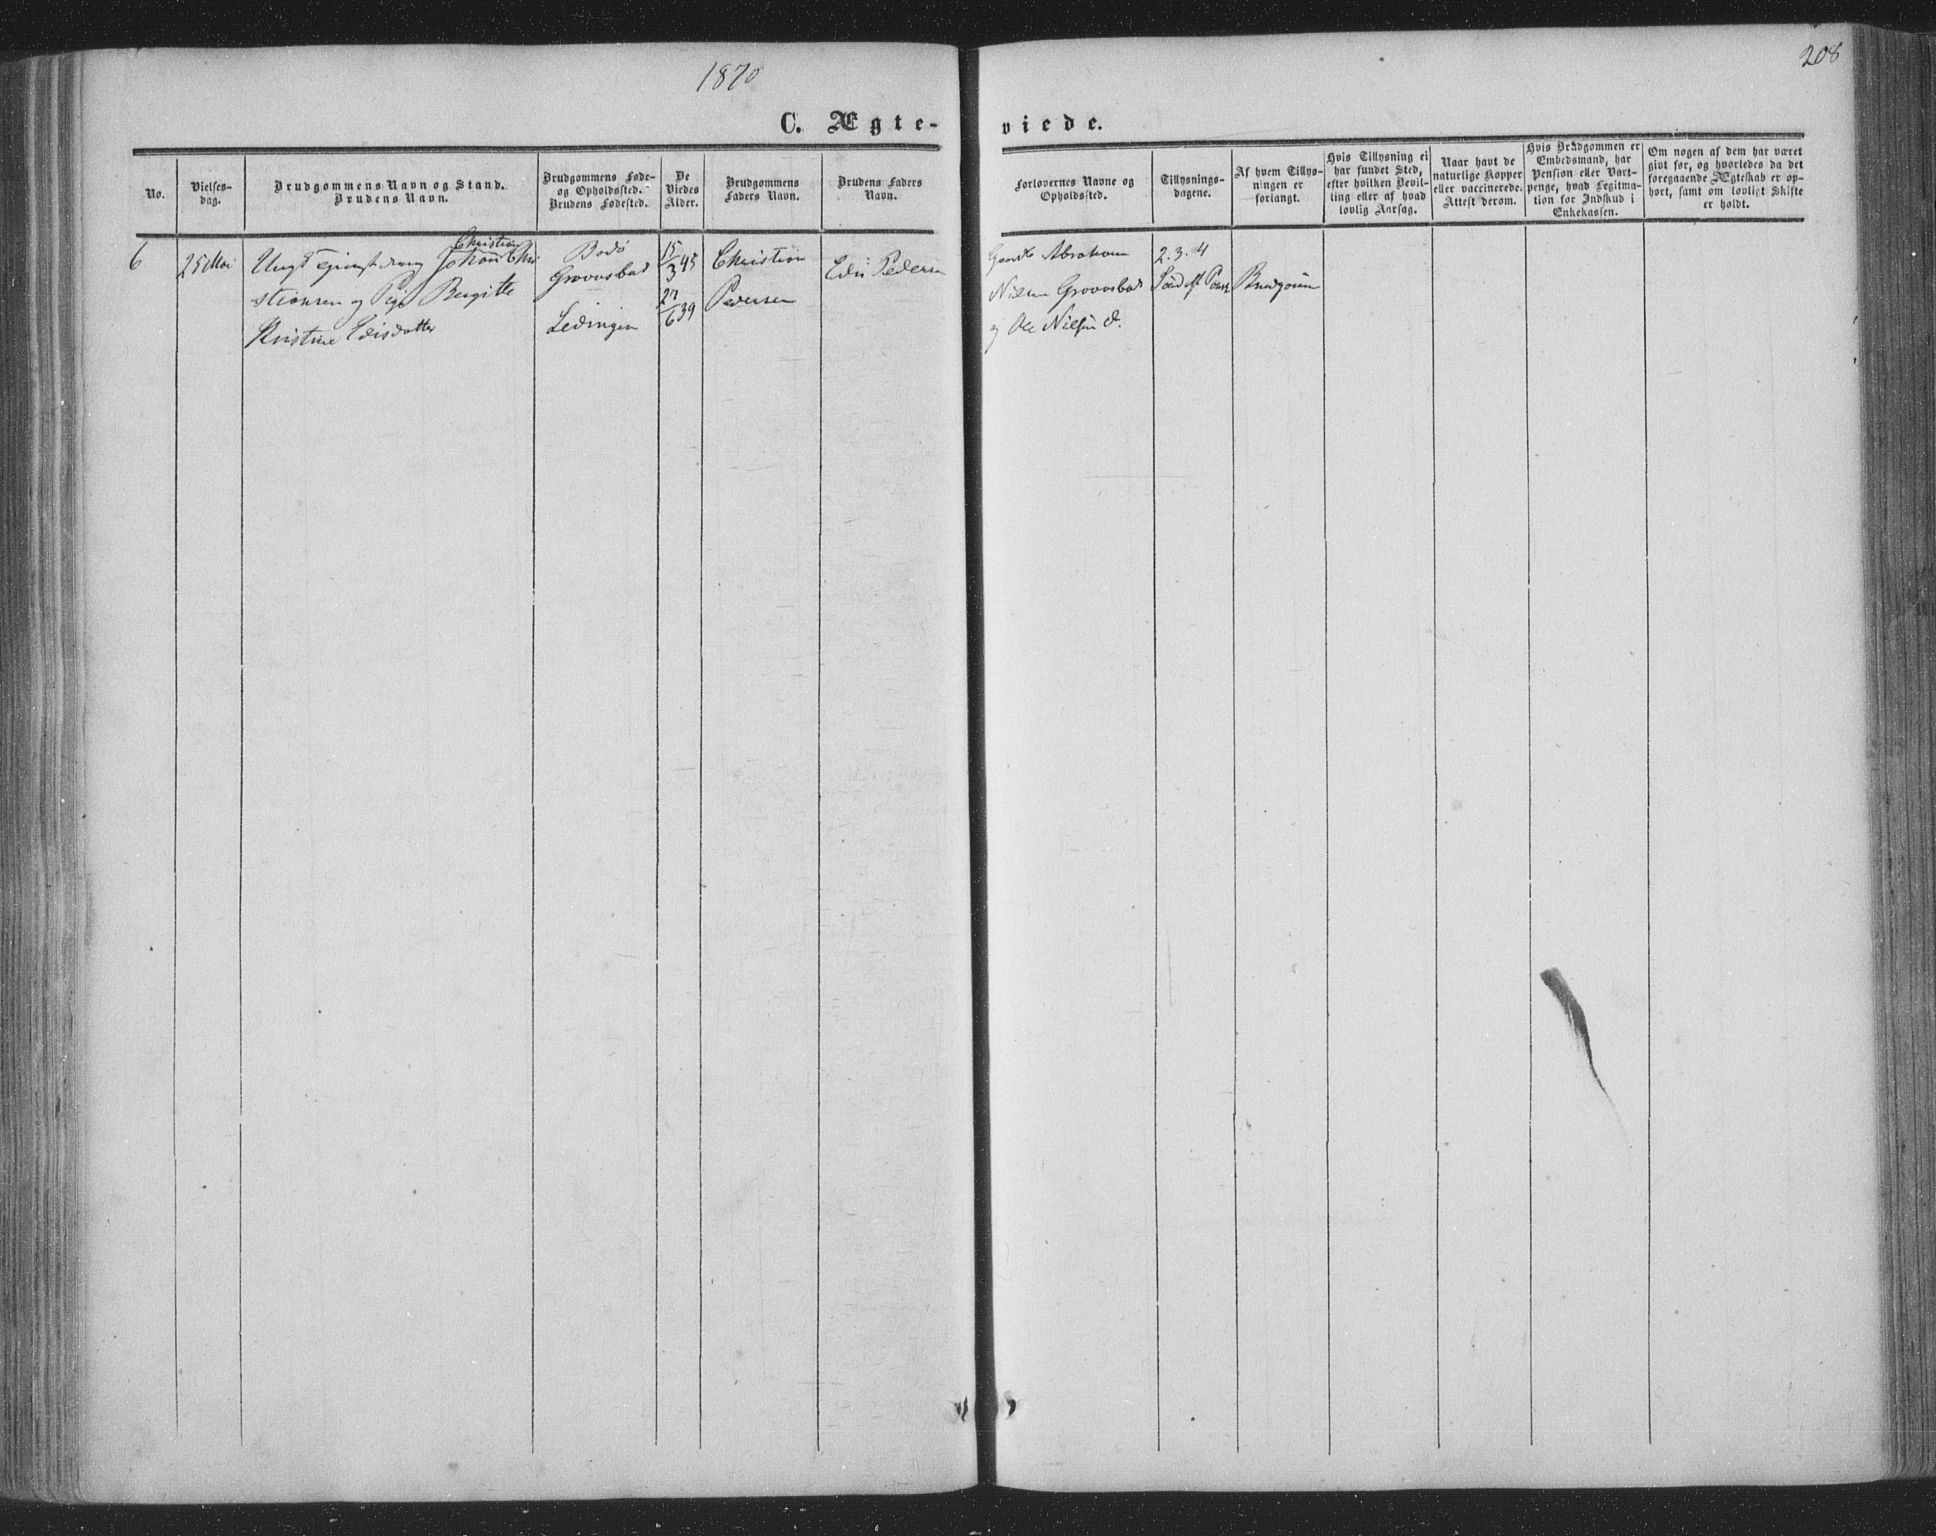 1870
208
C. Ægte-
viede.
No.
Vielses-
dag.
Brudgommens Navn og Stand.
Brudens Navn.
Brudgommens Føde-
og Opholdssted.
Brudens Fødested.
De
Viedes
Alder.
Brudgommens
Faders Navn.
Brudens Faders
Navn.
Forlovernes Navne og
Opholdssted.
Tillysnings-
dagene.
Af hvem Tillys-
ningen er
forlangt.
Hvis Tillysning ei
har fundet Sted,
efter hvilken Bevil-
ling eller af hvad
lovlig Aarsag.
Naar havt de
naturlige Kopper
eller vaccinerede.
Attest derom.
Hvis Brudgommen er
Embedsmand, har
Pension eller Vart-
penge, hvad Legitima-
tion for Indskud i
Enkekassen.
Om nogen af dem har været
givt før, og hvorledes da det
foregaaende Ægteskab er op-
hørt, samt om lovligt Skifte
er holdt.
6
25 Mai
Christian
Ungk Johan Chri
stiansen og Pige Bergitte
Kristine Edisdatter
Bodø
Groovsbad
Lødingen
15/3 45
27/6 39
Christian
Pedersen
Edis Pedersen
Gaardb Abraham
Nilsen Groovsbad
og Ole Nilsen d.
2. 3. 4
Sönd eft Paask
Brudgom